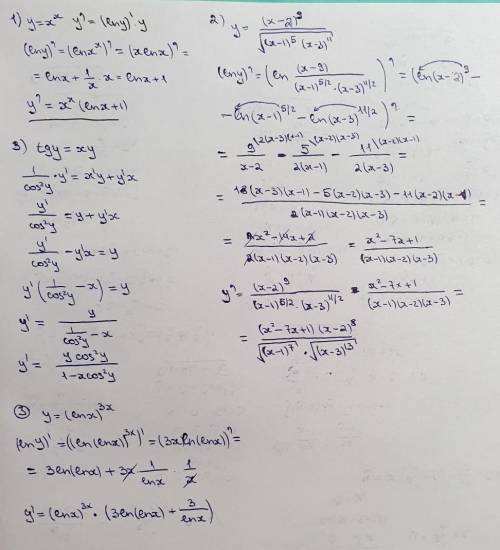 1) y=x^x y'=(lny)'·y
(lny)'=(lnx^x)'=(xlnx)'=
=lnx+1/x·x=lnx+1
y'=x^x(lnx+1)
3) tgy=xy
1/cos²y·y'=x'y+y'x
y'/cos²y=y+y'x
y'/cos²y-y'x=y
y'(1/cos²y-x)=y
y'=y/(1/cos²y-x)
y'=ycos²y/(1-xcos²y)
2) y=(x-2)^9/√((x-1)^5(x-3)^11)
(lny)'=(ln (x-9)/((x-1)^5/2·(x-3)^11/2))'=(ln(x-2)^9-
-ln(x-1)^5/2-ln(x-3)^11/2)'=
=9\2(x-3)(x-1)/(x-2)-5\(x-2)(x-3)/2(x-1)-11\(x-2)(x-1)/2(x-3)=
=(18(x-3)(x-1)-5(x-2)(x-3)-11(x-2)(x-1))/(2(x-1)(x-2)(x-3))=
=(2x²-14x+2)/(2(x-1)(x-2)(x-3))=(x²-7x+1)/((x-1)(x-2)(x-3))
y'=(x-2)^9/((x-1)^5/2·(x-3)^11/2)·(x²-7x+1)/((x-1)(x-2)(x-3))=
=(x²-7x+1)(x-2)^8/(√(x-1)^7·√(x-3)^13)
③ y=(lnx)^3x
(lny)'=(ln(lnx)^3x)'=(3xln(lnx))'=
=3ln(lnx)+3x·1/lnx·1/x
y'=(lnx)^3x·(3ln(lnx)+3/lnx)